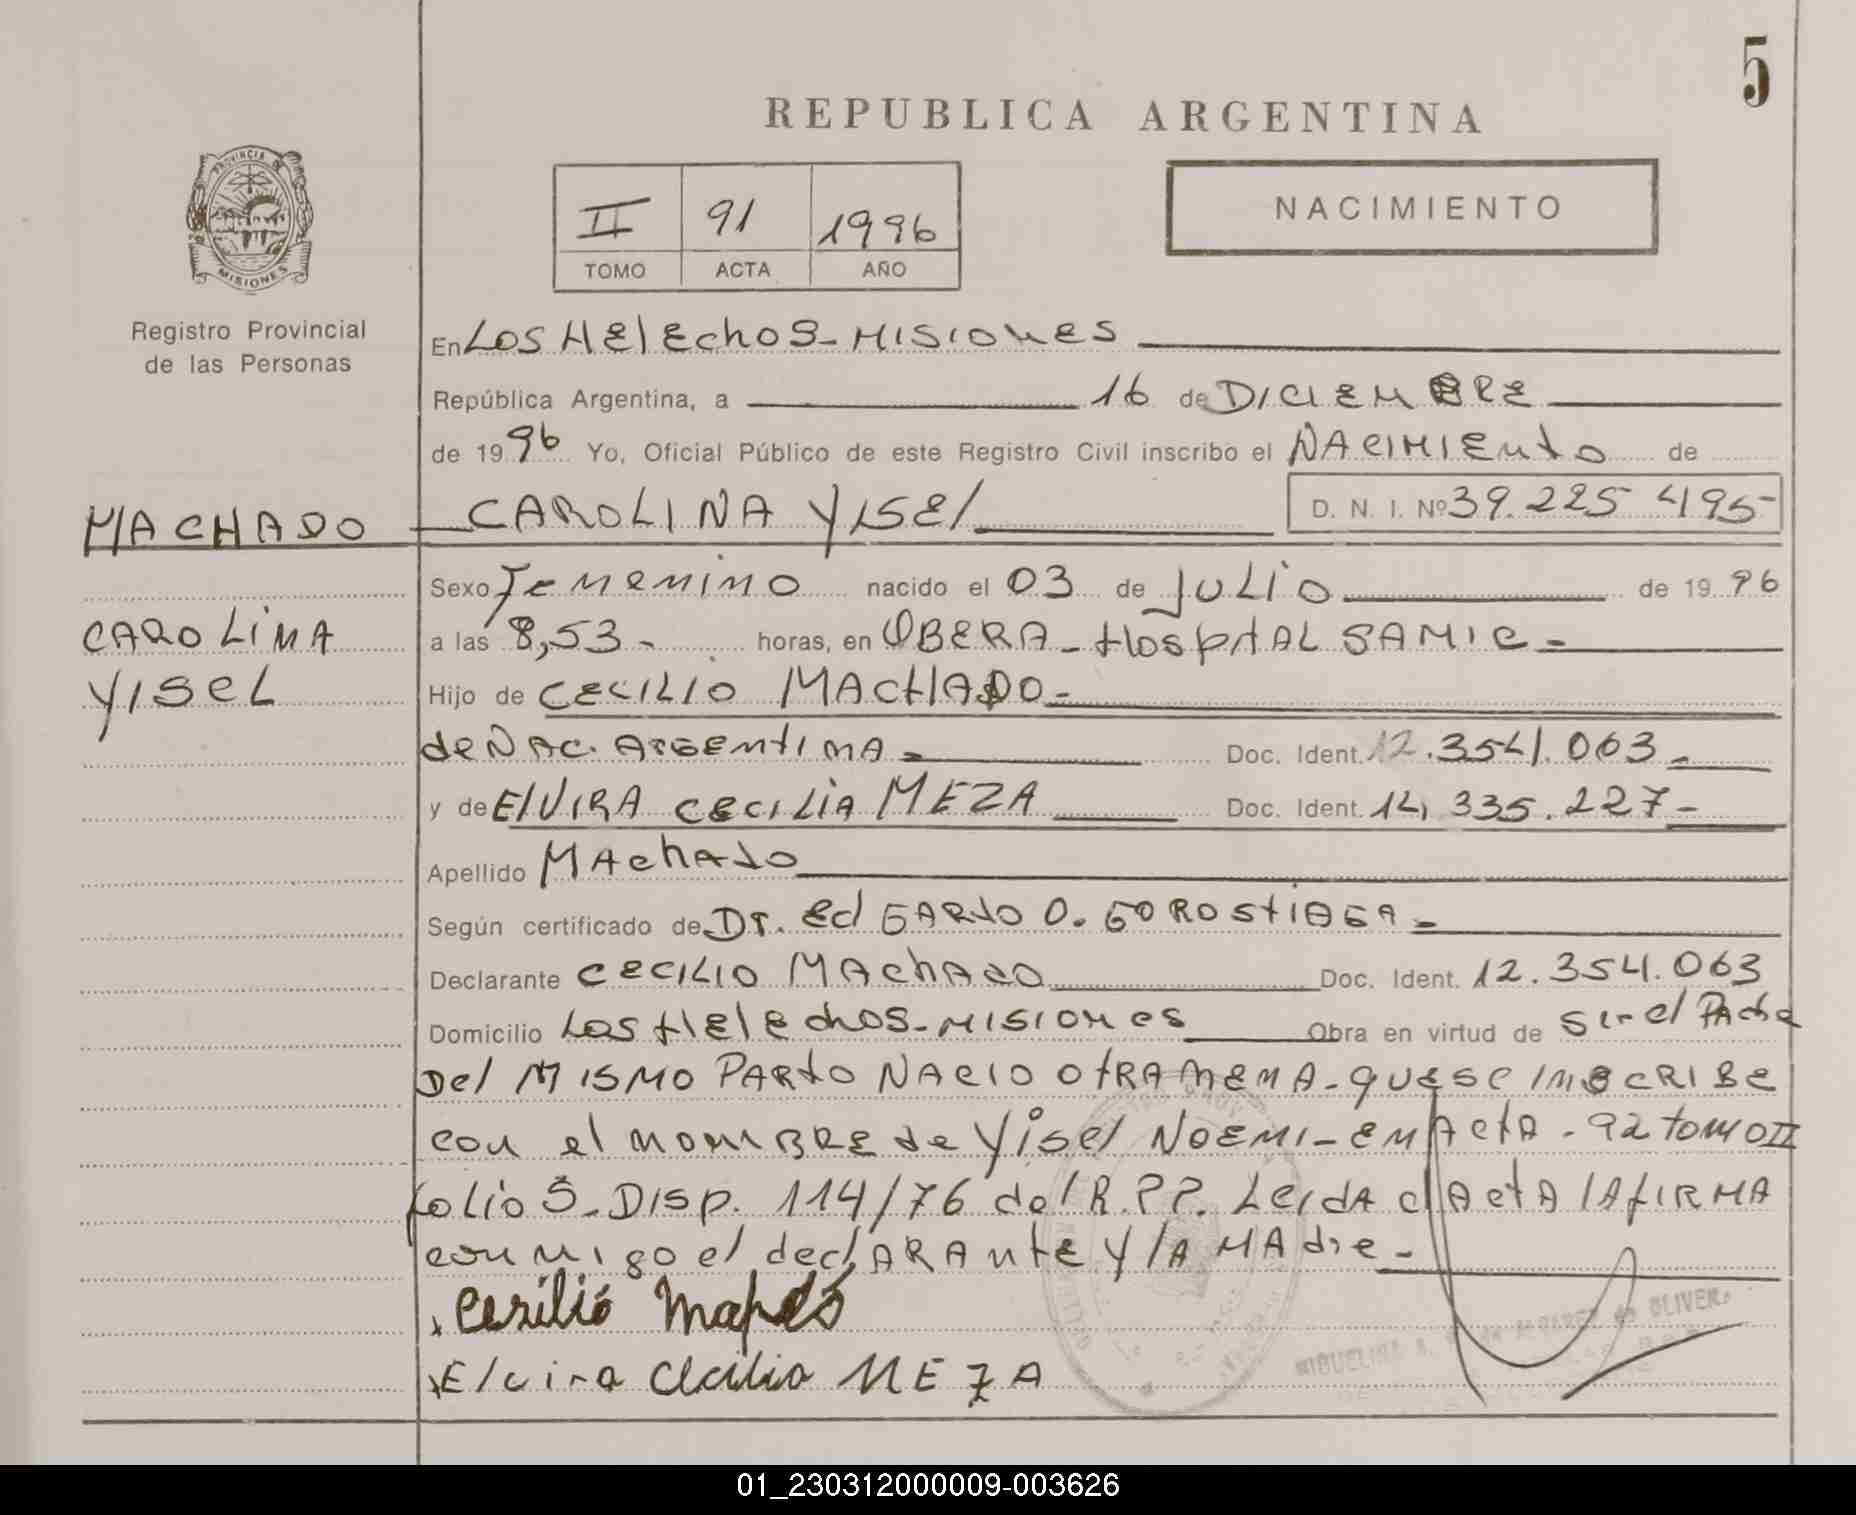 5
REPUBLICA ARGENTINA
PROVINCIA DE
MISIONES
Registro Provincial
de las Personas
II 91 1996
TOMO ACTA AÑO
NACIMIENTO
En LOS HElEchOS - MISIONES
República Argentina, a 16 de DICIEMBRE
de 1996 Yo, Oficial Público de este Registro Civil inscribo el NACIMIENTO de
MACHADO CAROLINA YISEl D. N. I. Nº 39.225 495
Sexo FEMENINO nacido el 03 de JULIO de 1996
CAROLINA
a las 8,53 - horas, en OBERA - HospItAL SAMIC -
YISEL
Hijo de CECILIO MACHADO -
de NAC. ARGENtINA - Doc. Ident. 12.354.063 -
y de ElVIRA CECILIA MEZA Doc. Ident. 14,335.227 -
Apellido MAchAdo
Según certificado de Dr. Ed GARdO O. GOROStIAGA -
Declarante CECILIO MAchADO Doc. Ident. 12.354.063
Domicilio LOS HElEchOS - MISIONES Obra en virtud de Ser el PAdre
Del MISMO PARtO NACIO OtRA NENA - QUE SE INSCRIBE
con el NOMBRE de Yisel NOEMI - EN ActA - 92 tomo II
folio 5 - DISp. 114/76 del R.P.P. LEIdA el ActA lA fIRMA
conmigo el declARANte y lA MAdre -
Cesilio Machado
Elvira Cecilia MEZA
OLIVER
01_230312000009-003626